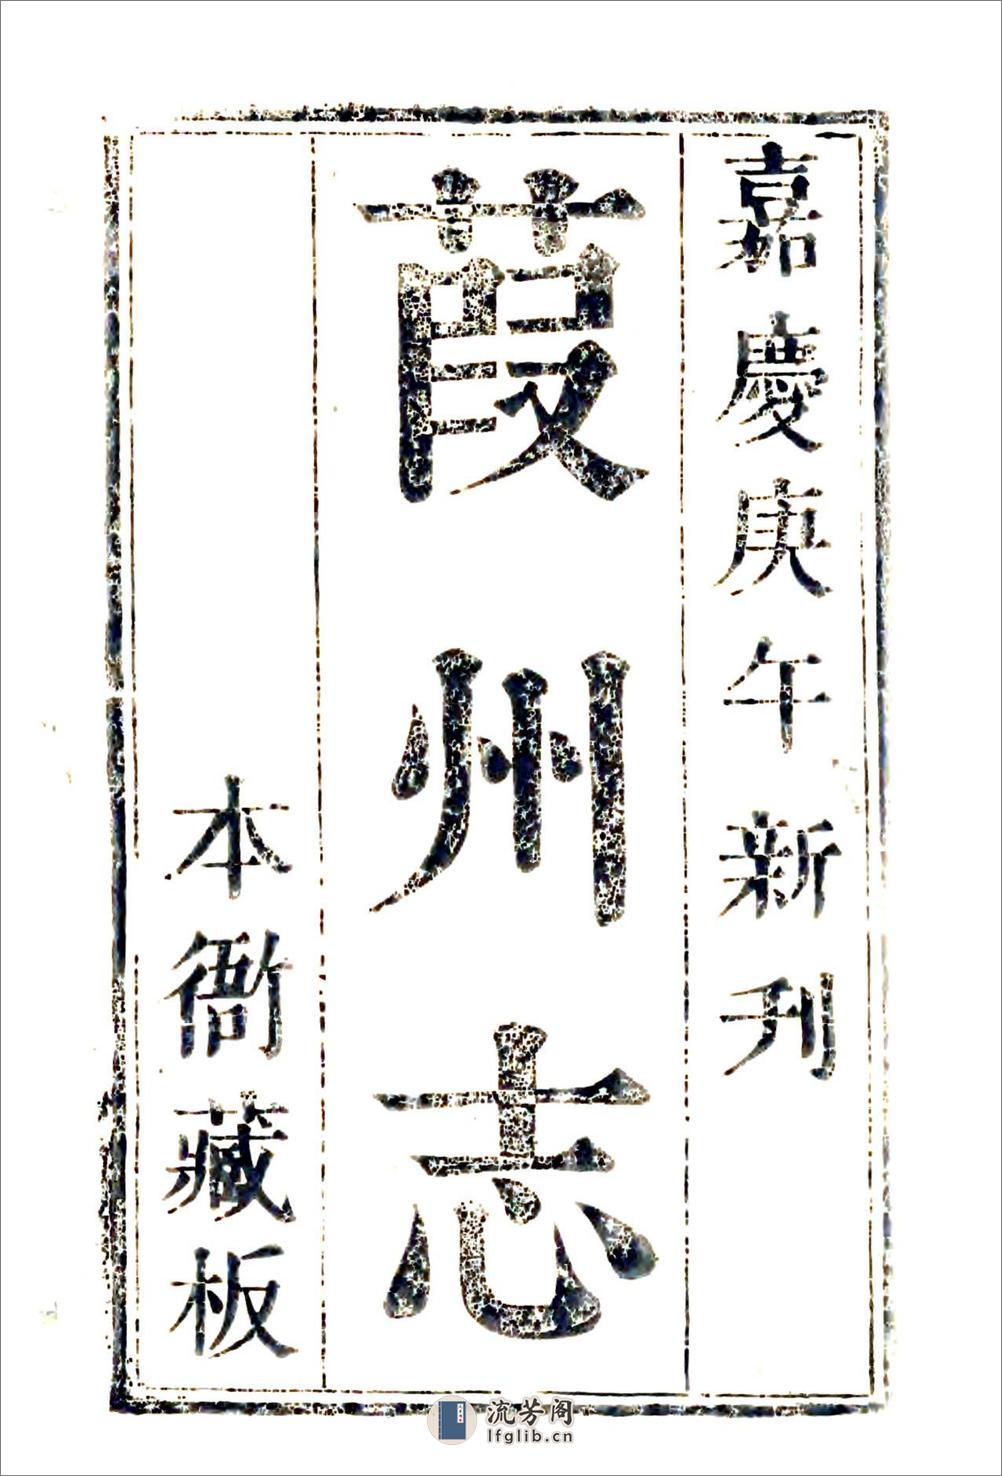 嘉慶庚午新刊
葭州志
本衙藏板
流芳阁
lfglib.cn